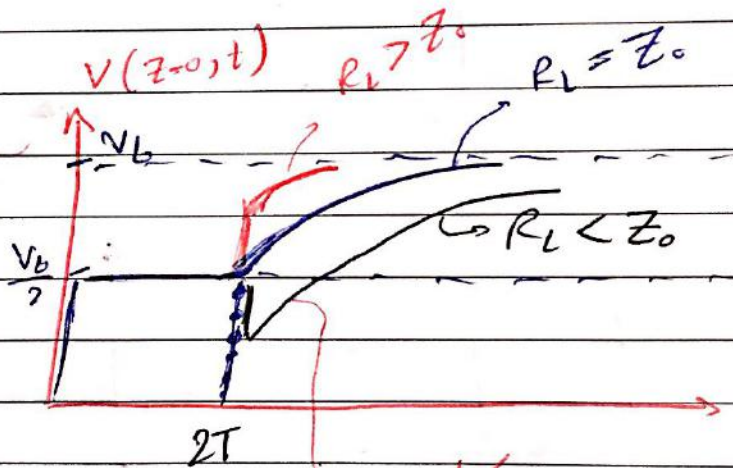 V(z=0,t) R_L > Z_0 R_L = Z_0
V_b
R_L < Z_0
V_b/2
2T